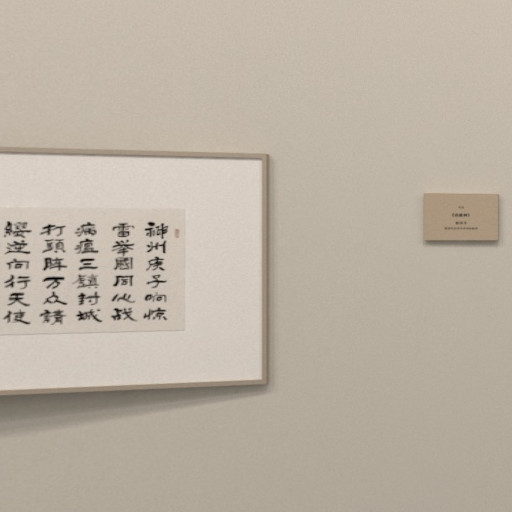 神州庚子响惊
雷举国同心战
病瘟三镇封城
打頭陣万众請
綬逆向行天使